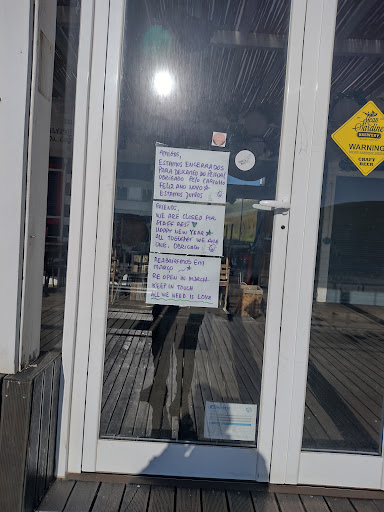 AMIGOS,
ESTAMOS ENCERRADOS
PARA DESCANSO DO PESSOAL
OBRIGADO PELO CARINHO
FELIZ ANO NOVO
ESTAMOS JUNTOS
FRIENDS,
WE ARE CLOSED FOR
STAFF REST
HAPPY NEW YEAR
ALL TOGETHER WE ARE
ONE, OBRIGADO
REABRIREMOS EM
MARÇO
RE OPEN IN MARCH
KEEP IN TOUCH
ALL WE NEED IS LOVE
Jean
Sardine
BREWERY
WARNING
CRAFT
BEER